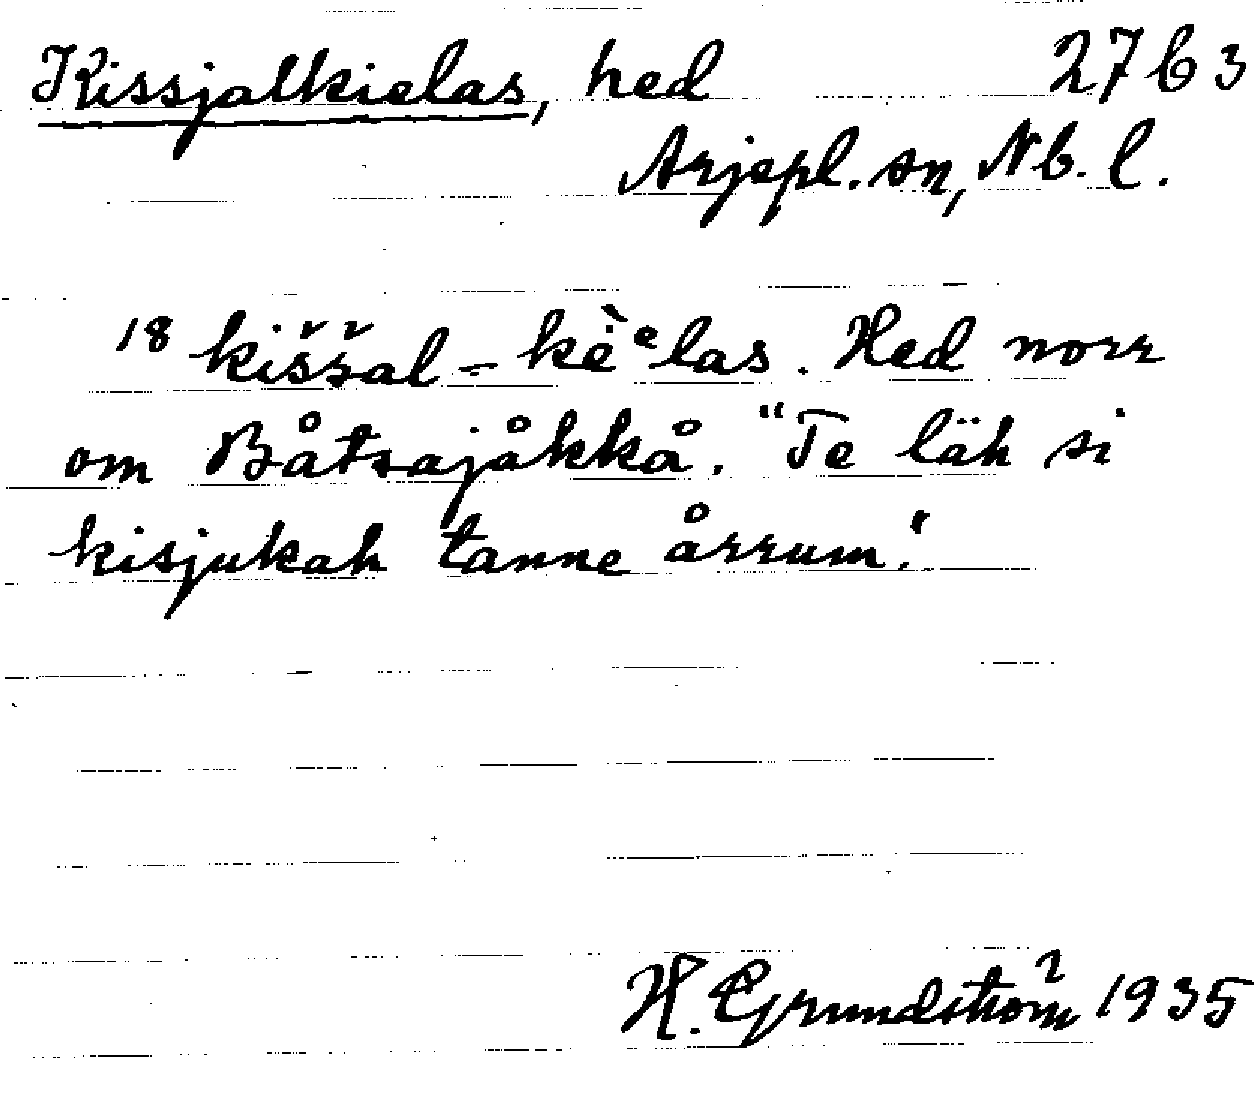 Kissjalkielas, hed 27 b 3
Arjepl. sn, Nb. l.
18 kiššal-kè̀ᵉlas. Hed norr
om Båtsajåkkå. "Te läh si
kisjukah tanne årrum!"
H. Grundström 1935